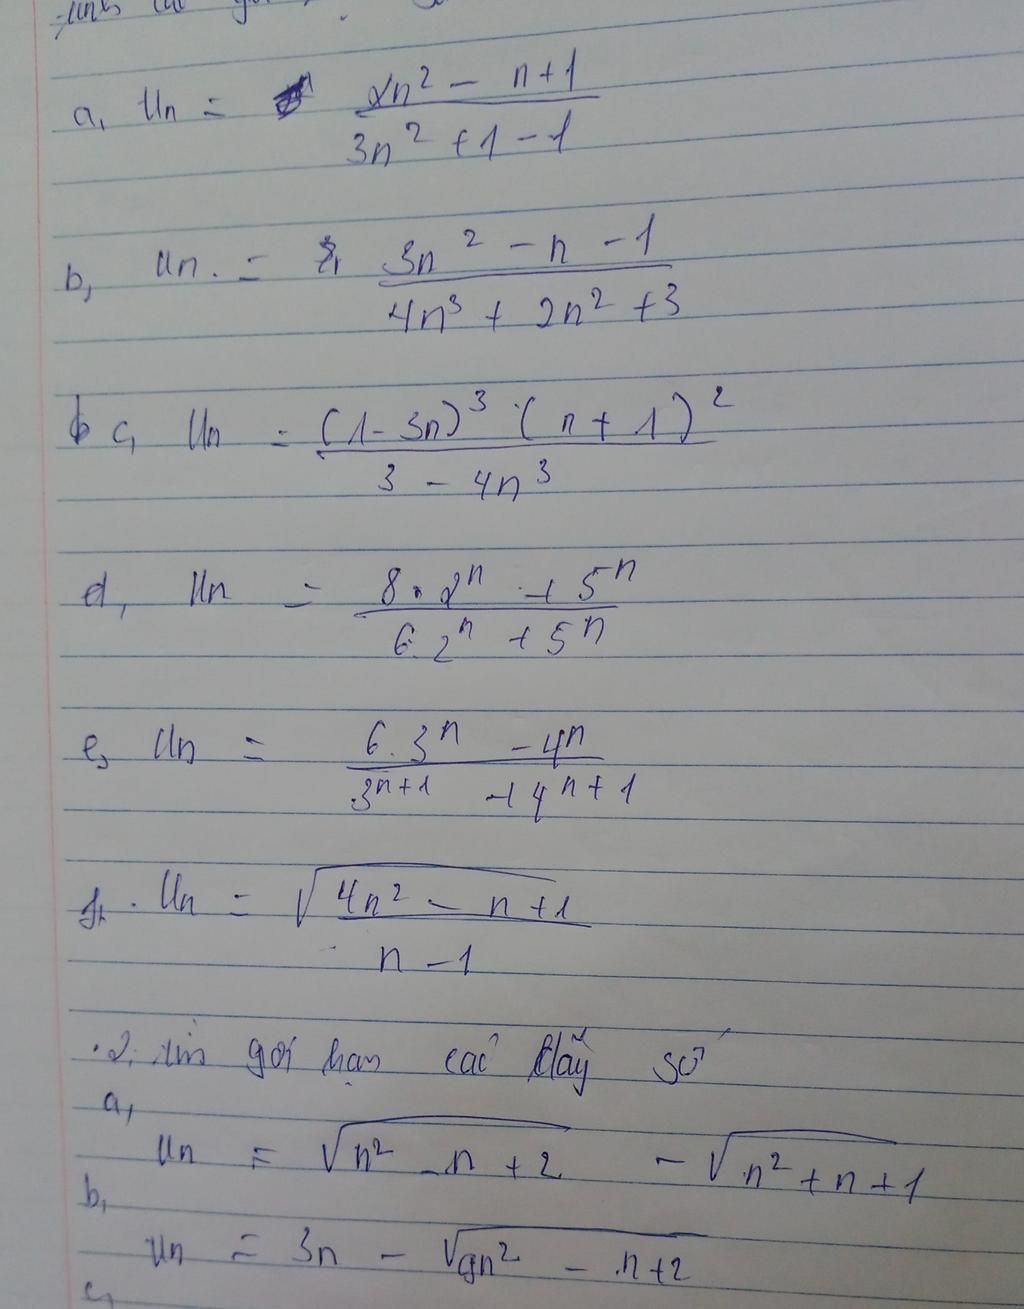 a, Un = (2n² - n+1)/(3n² + 1 - 1)
b, Un = (3n² - n - 1)/(4n³ + 2n² + 3)
c, Un = ((1 - 3n)³ · (n + 1)²)/(3 - 4n³)
d, Un = (8 . 2ⁿ + 5ⁿ)/(6. 2ⁿ + 5ⁿ)
e, Un = (6. 3ⁿ - 4ⁿ)/(3ⁿ⁺¹ + 4ⁿ⁺¹)
f, Un = √(4n² - n + 1)/(n - 1)
2, tìm giới hạn các dãy số
a,
Un = √(n² - n + 2) - √(n² + n + 1)
b,
Un = 3n - √(9n² - n + 2)
c,